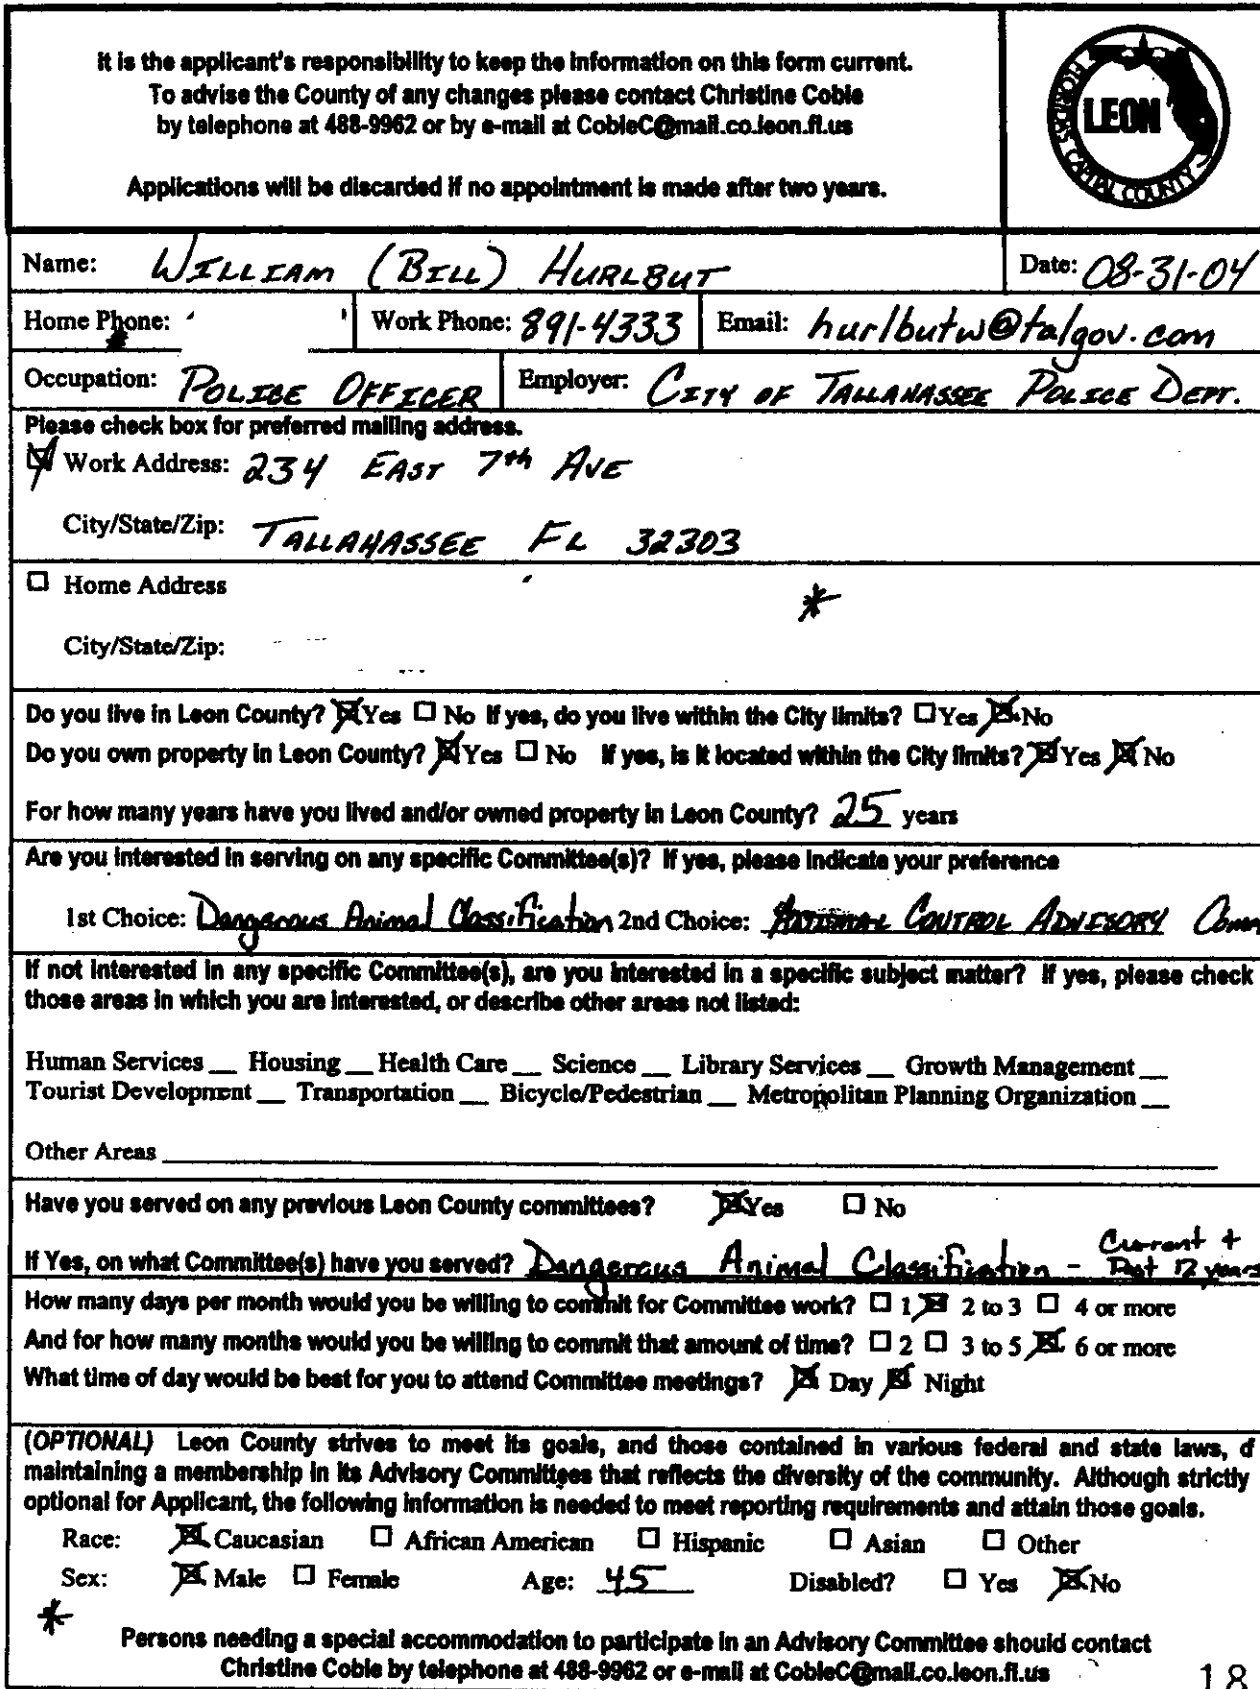 It is the applicant's responsibility to keep the information on this form current.
To advise the County of any changes please contact Christine Coble
by telephone at 488-9962 or by e-mail at CobleC@mail.co.leon.fl.us
Applications will be discarded if no appointment is made after two years.
LEON
FLORIDA'S CAPITAL COUNTY
Name: WILLIAM (BILL) HURLBUT Date: 08-31-04
Home Phone: Work Phone: 891-4333 Email: hurlbutw@talgov.com
Occupation: POLICE OFFICER Employer: CITY OF TALLAHASSEE POLICE DEPT.
Please check box for preferred mailing address.
☒ Work Address: 234 EAST 7th AVE
City/State/Zip: TALLAHASSEE FL 32303
☐ Home Address *
City/State/Zip:
Do you live in Leon County? ☒ Yes ☐ No If yes, do you live within the City limits? ☐ Yes ☒ No
Do you own property in Leon County? ☒ Yes ☐ No If yes, is it located within the City limits? ☒ Yes ☒ No
For how many years have you lived and/or owned property in Leon County? 25 years
Are you interested in serving on any specific Committee(s)? If yes, please indicate your preference
1st Choice: Dangerous Animal Classification 2nd Choice: CONTROL ADVISORY Comm
If not interested in any specific Committee(s), are you interested in a specific subject matter? If yes, please check
those areas in which you are interested, or describe other areas not listed:
Human Services __ Housing __ Health Care __ Science __ Library Services __ Growth Management __
Tourist Development __ Transportation __ Bicycle/Pedestrian __ Metropolitan Planning Organization __
Other Areas
Have you served on any previous Leon County committees? ☒ Yes ☐ No
If Yes, on what Committee(s) have you served? Dangerous Animal Classification - Current + Past 12 years
How many days per month would you be willing to commit for Committee work? ☐ 1 ☒ 2 to 3 ☐ 4 or more
And for how many months would you be willing to commit that amount of time? ☐ 2 ☐ 3 to 5 ☒ 6 or more
What time of day would be best for you to attend Committee meetings? ☒ Day ☒ Night
(OPTIONAL) Leon County strives to meet its goals, and those contained in various federal and state laws, of
maintaining a membership in its Advisory Committees that reflects the diversity of the community. Although strictly
optional for Applicant, the following information is needed to meet reporting requirements and attain those goals.
Race: ☒ Caucasian ☐ African American ☐ Hispanic ☐ Asian ☐ Other
Sex: ☒ Male ☐ Female Age: 45 Disabled? ☐ Yes ☒ No
*
Persons needing a special accommodation to participate in an Advisory Committee should contact
Christine Coble by telephone at 488-9962 or e-mail at CobleC@mail.co.leon.fl.us
18